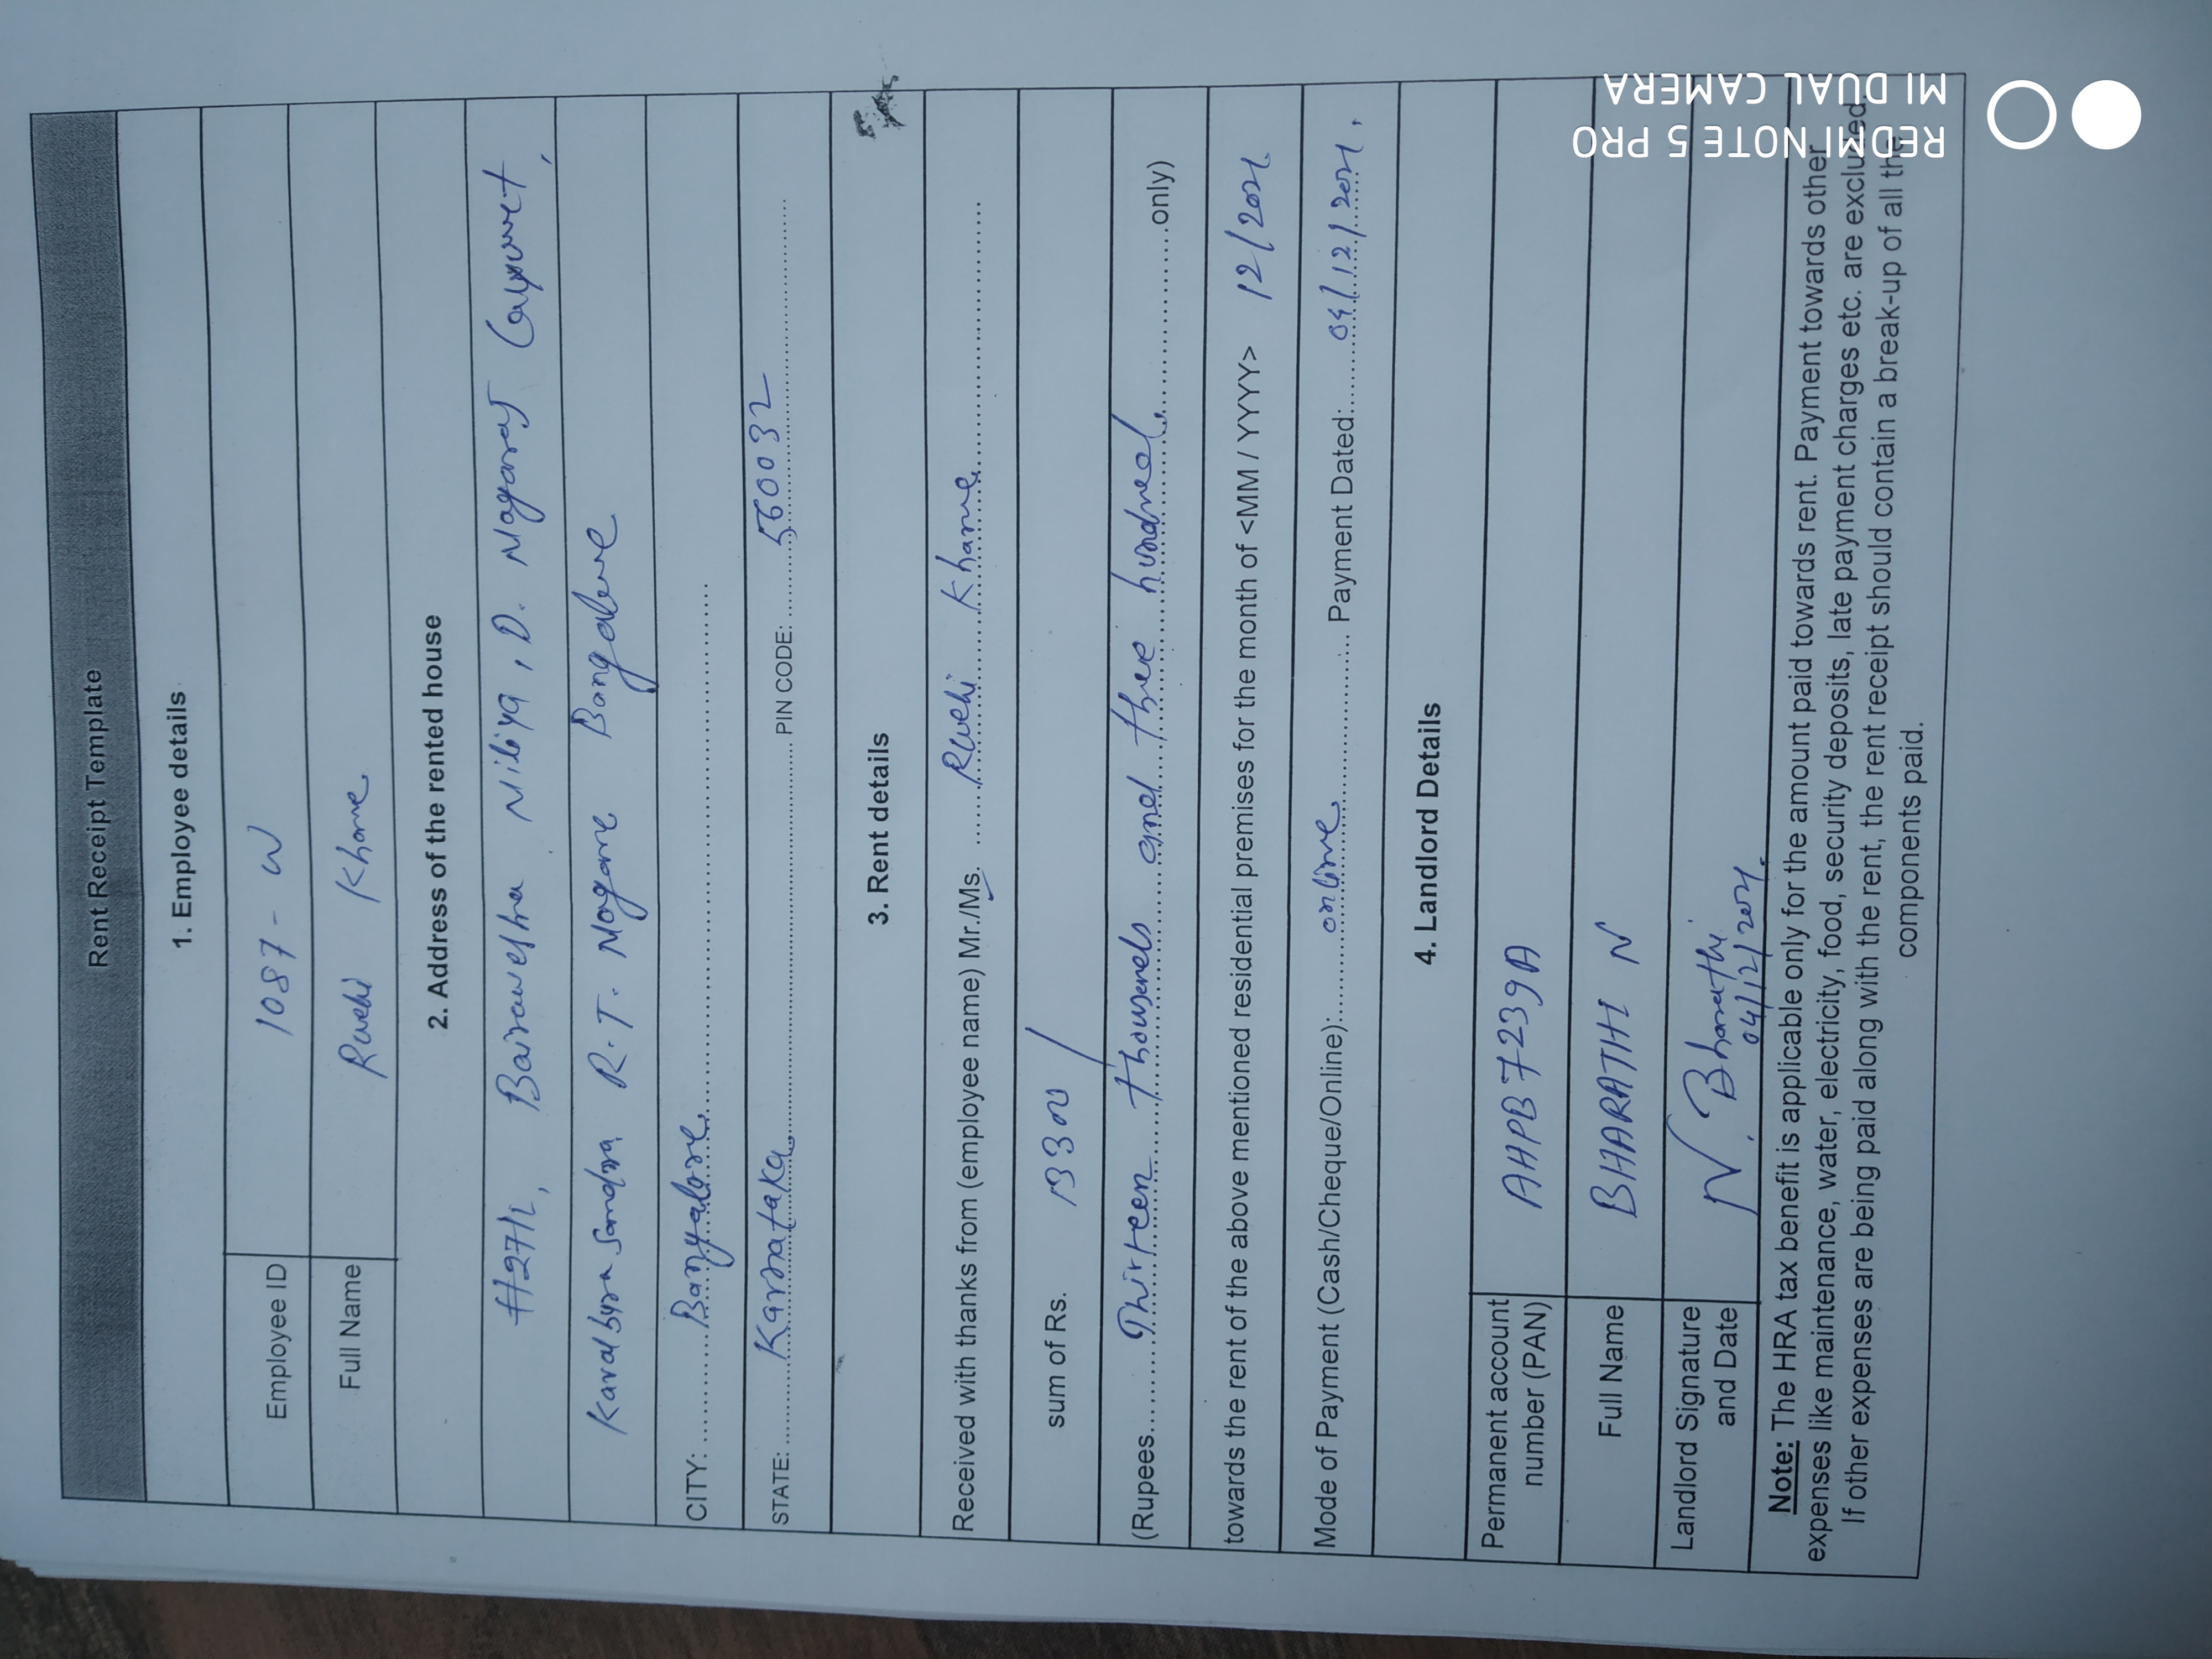 Rent Receipt Template
1. Employee details
Employee ID 1087-W
Full Name Ruchi Khare
2. Address of the rented house
#27/1, Nilaya, D. Nagaraj Layout,
R.T. Nagar Bangalore
CITY: Bangalore
STATE: Karnataka PIN CODE: 560032
3. Rent details
Received with thanks from (employee name) Mr./Ms. Ruchi Khare
sum of Rs. 13300/
(Rupees Thirteen thousands and three hundred only)
towards the rent of the above mentioned residential premises for the month of <MM / YYYY> 12/2021
Mode of Payment (Cash/Cheque/Online): online Payment Dated: 04/12/2021
4. Landlord Details
Permanent account
number (PAN) AHPB7239A
Full Name BHARATHI N
Landlord Signature
and Date N. Bharathi
04/12/2021
Note: The HRA tax benefit is applicable only for the amount paid towards rent. Payment towards other
expenses like maintenance, water, electricity, food, security deposits, late payment charges etc. are excluded.
If other expenses are being paid along with the rent, the rent receipt should contain a break-up of all the
components paid.
REDMI NOTE 5 PRO
MI DUAL CAMERA